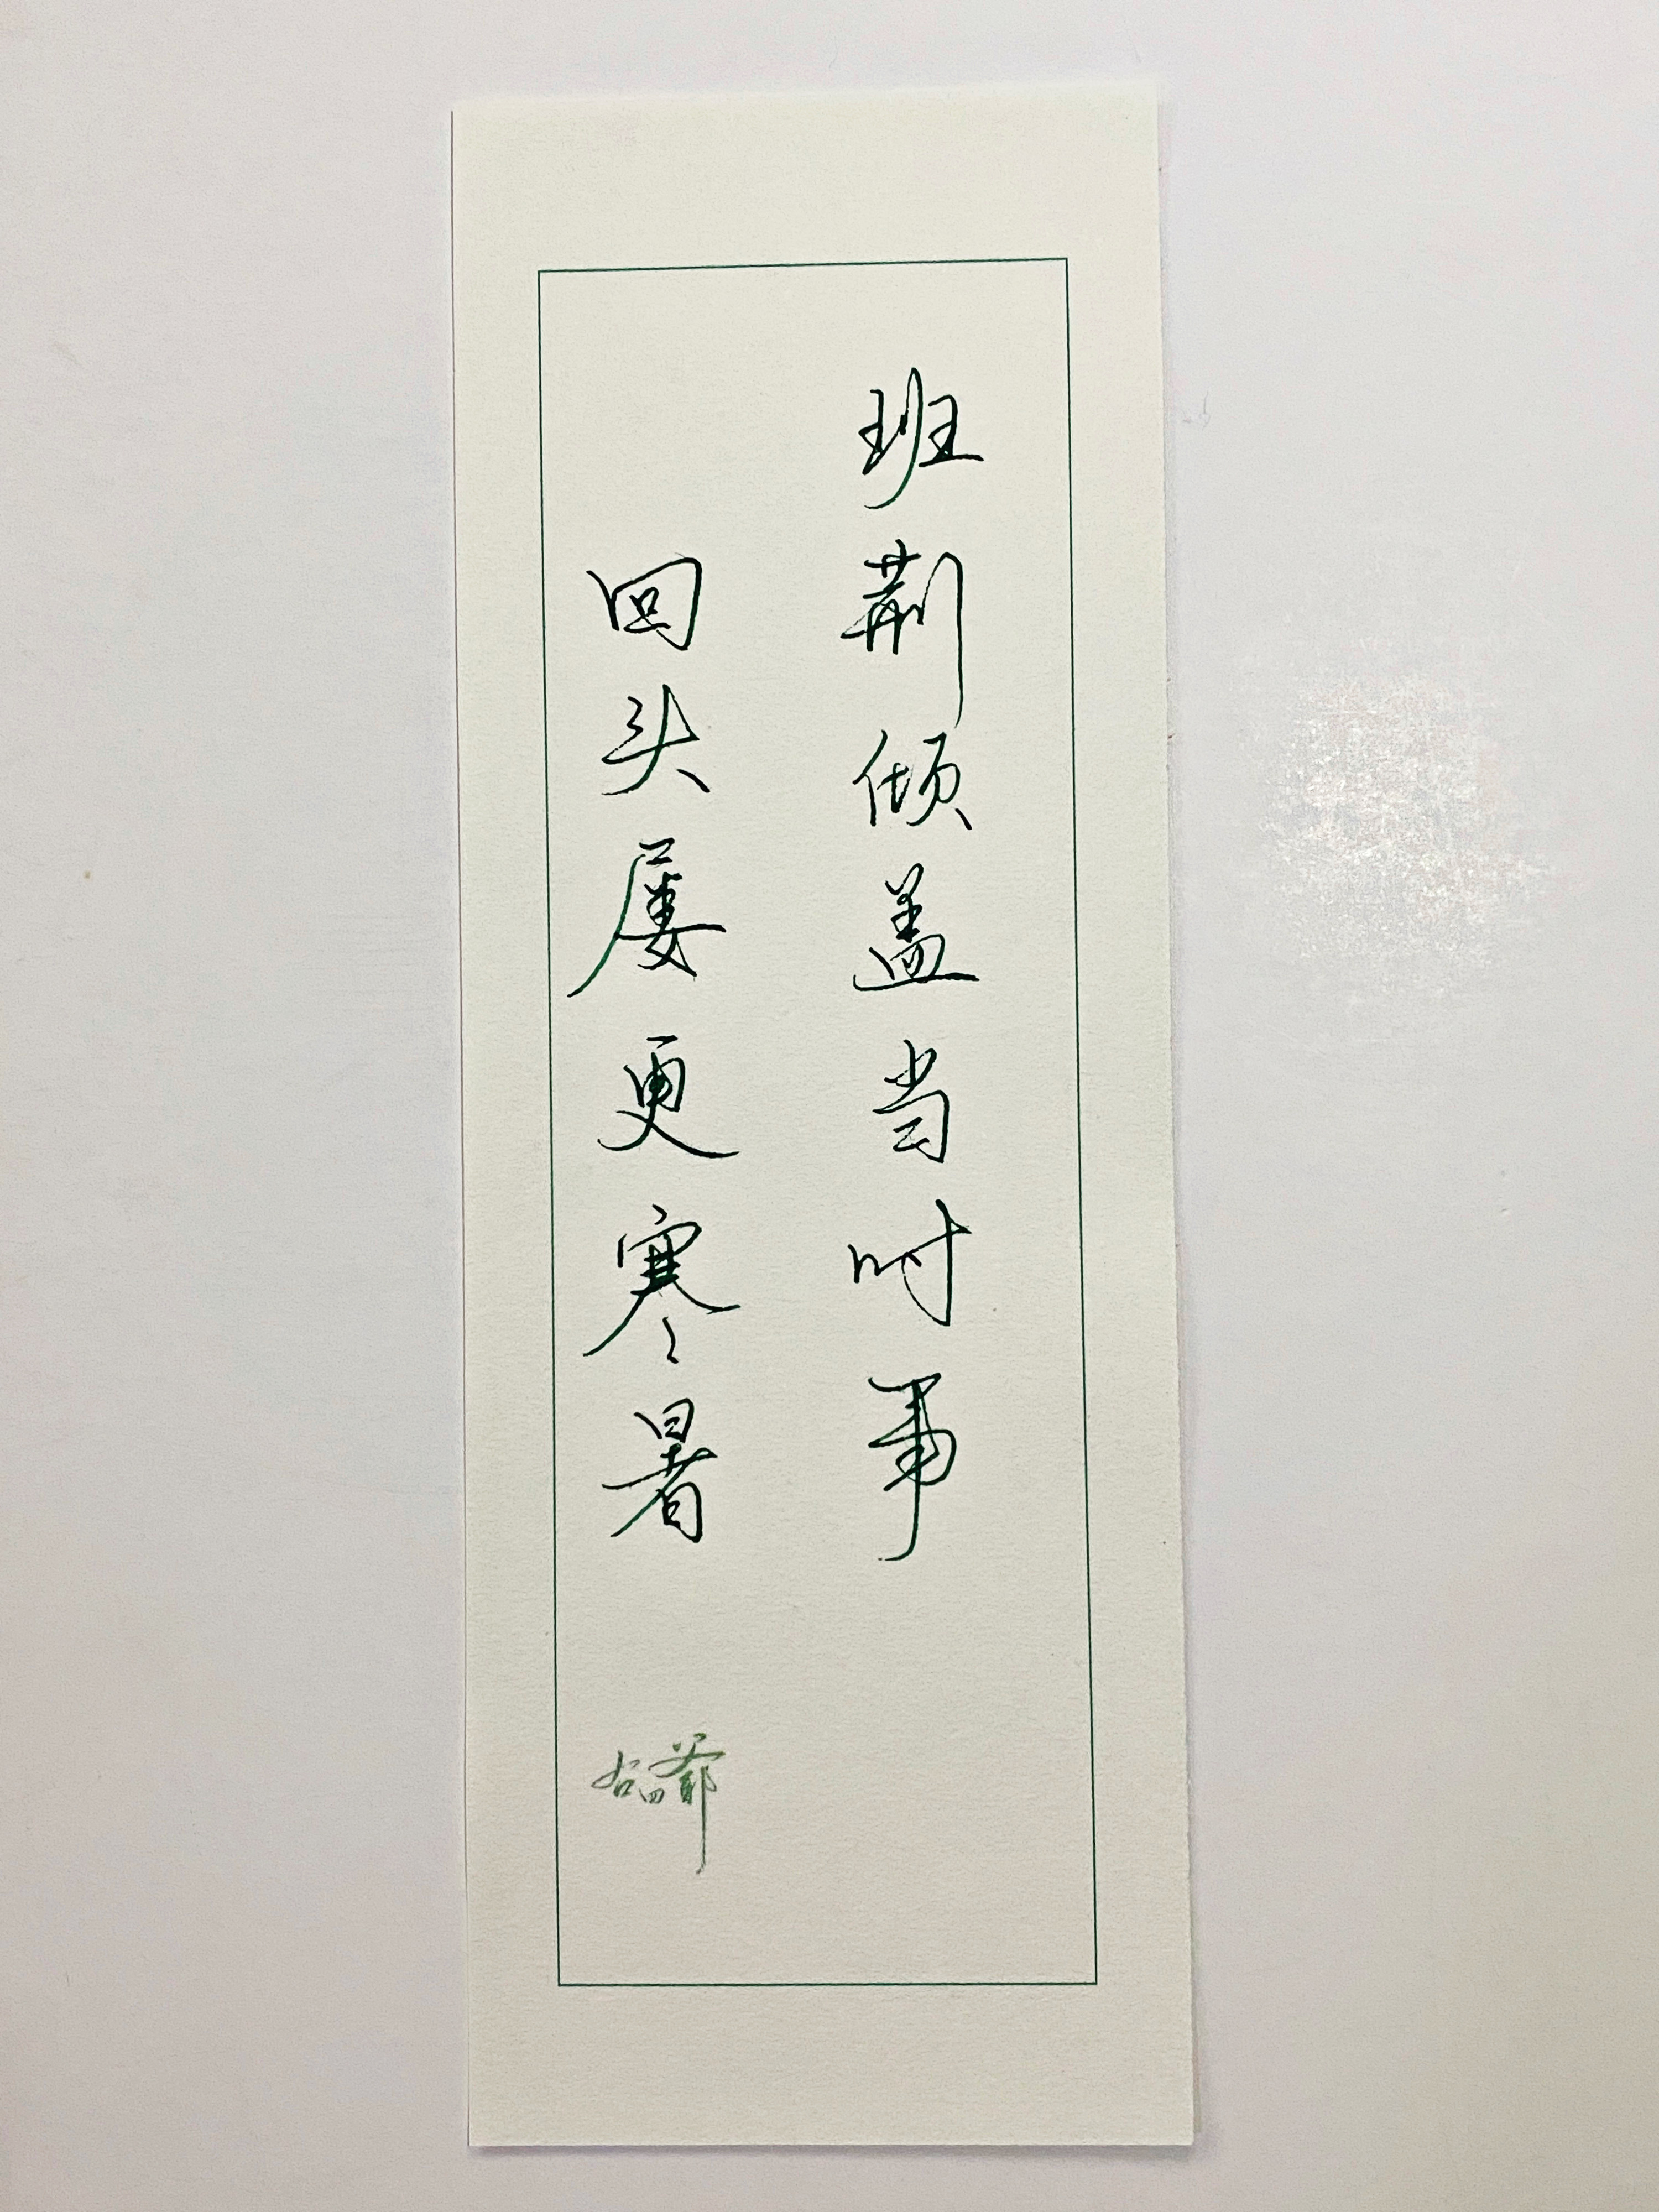 班荆倾盖当时事
回头屡更寒暑